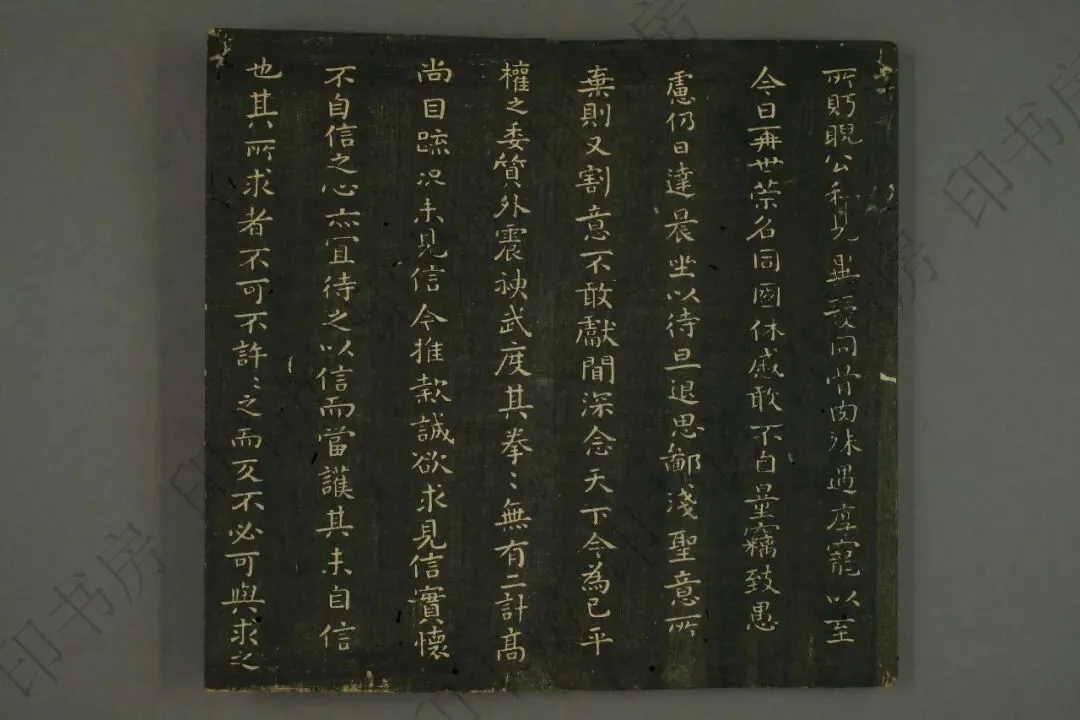 所貺睨公私見異愛同骨肉殊遇厚寵以至
今日再世荣名同國休慼敢不自量竊致愚
慮仍日達晨坐以待旦退思鄙淺聖意所
棄則又割意不敢獻聞深念天下今為已平
權之委質外震神武度其拳〻無有二計高
尚自疏况未見信今推款誠欲求見信實懷
不自信之心亦宜待之以信而當護其未自信
也其所求者不可不許〻之而反不必可與求之
印书房